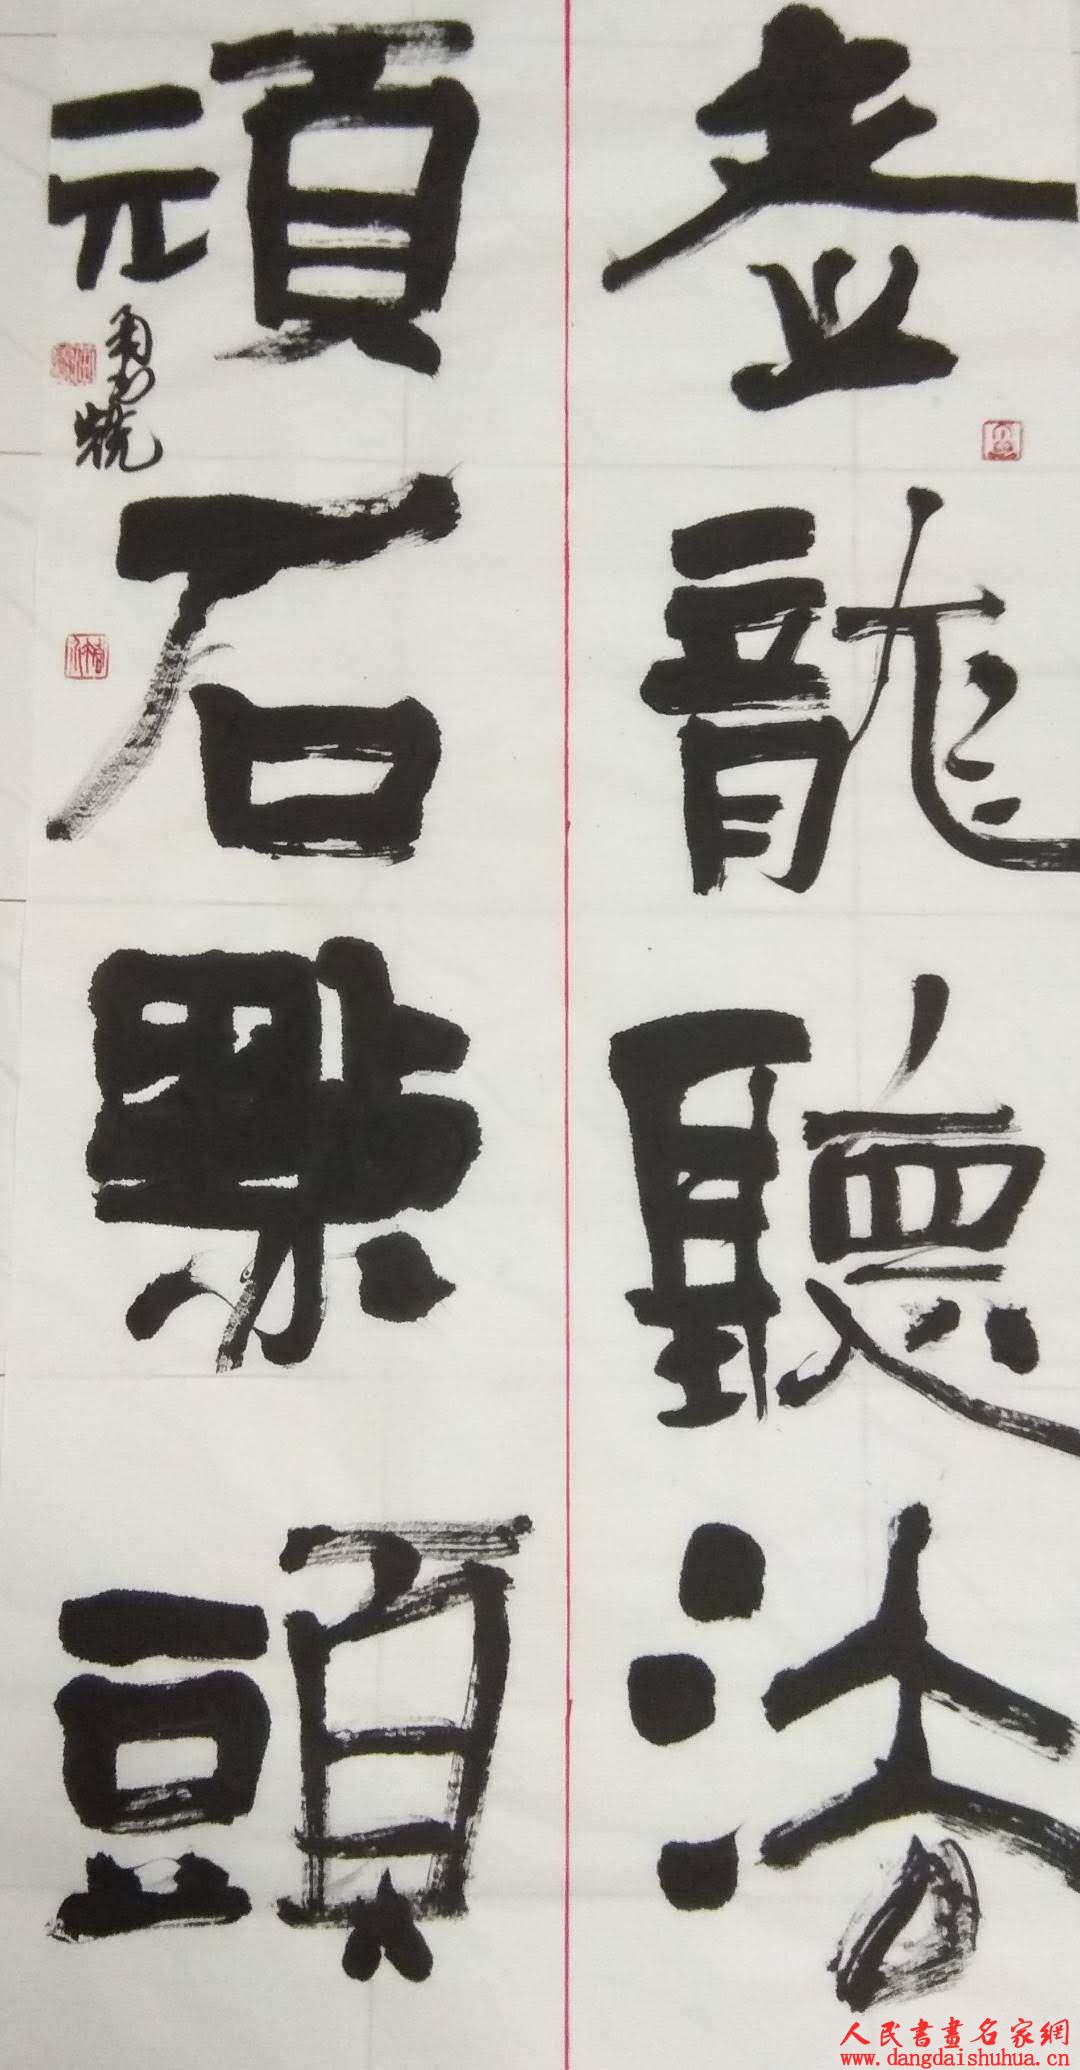 老龍聽法
頑石點頭
人民書畫名家網
www.dangdaishuhua.cn